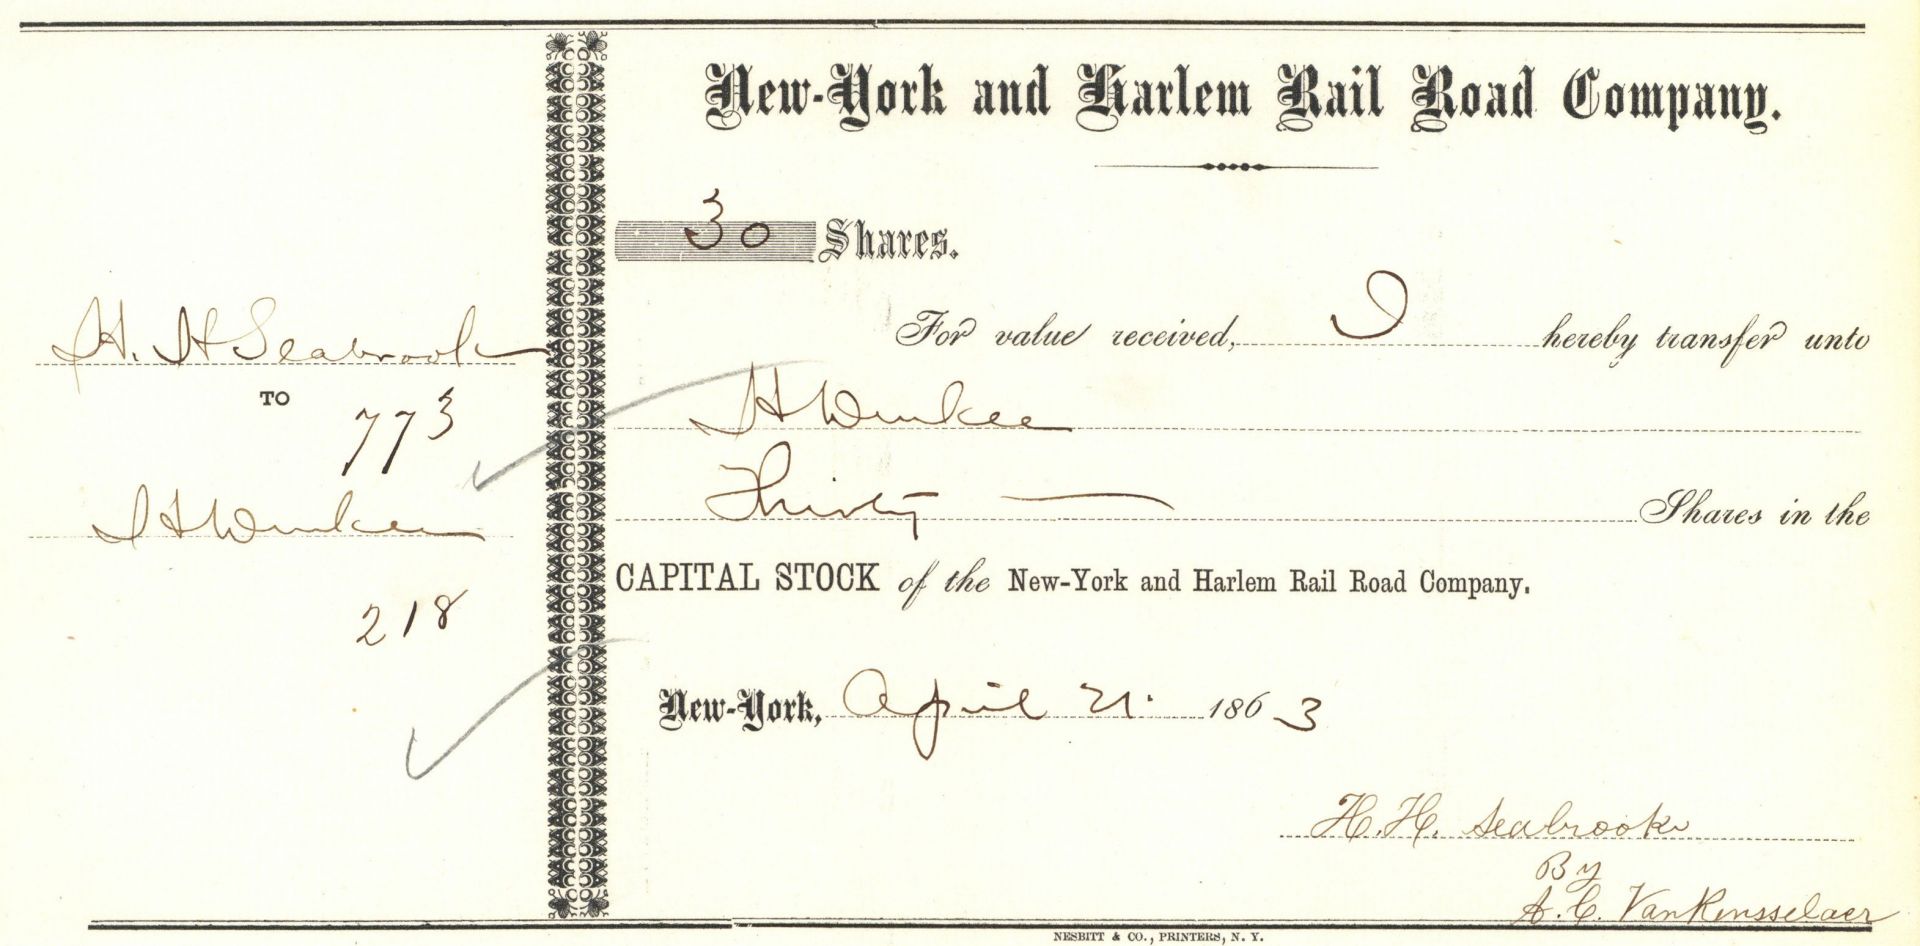 New-York and Harlem Rail Road Company.
30 Shares.
For value received, I hereby transfer unto
Thirty Shares in the
CAPITAL STOCK of the New-York and Harlem Rail Road Company.
New-York, April 21. 1863
H. H. Seabrook
By
A. C. Van Rensselaer
H. H Seabrook
TO
773
218
NESBITT & CO., PRINTERS, N. Y.